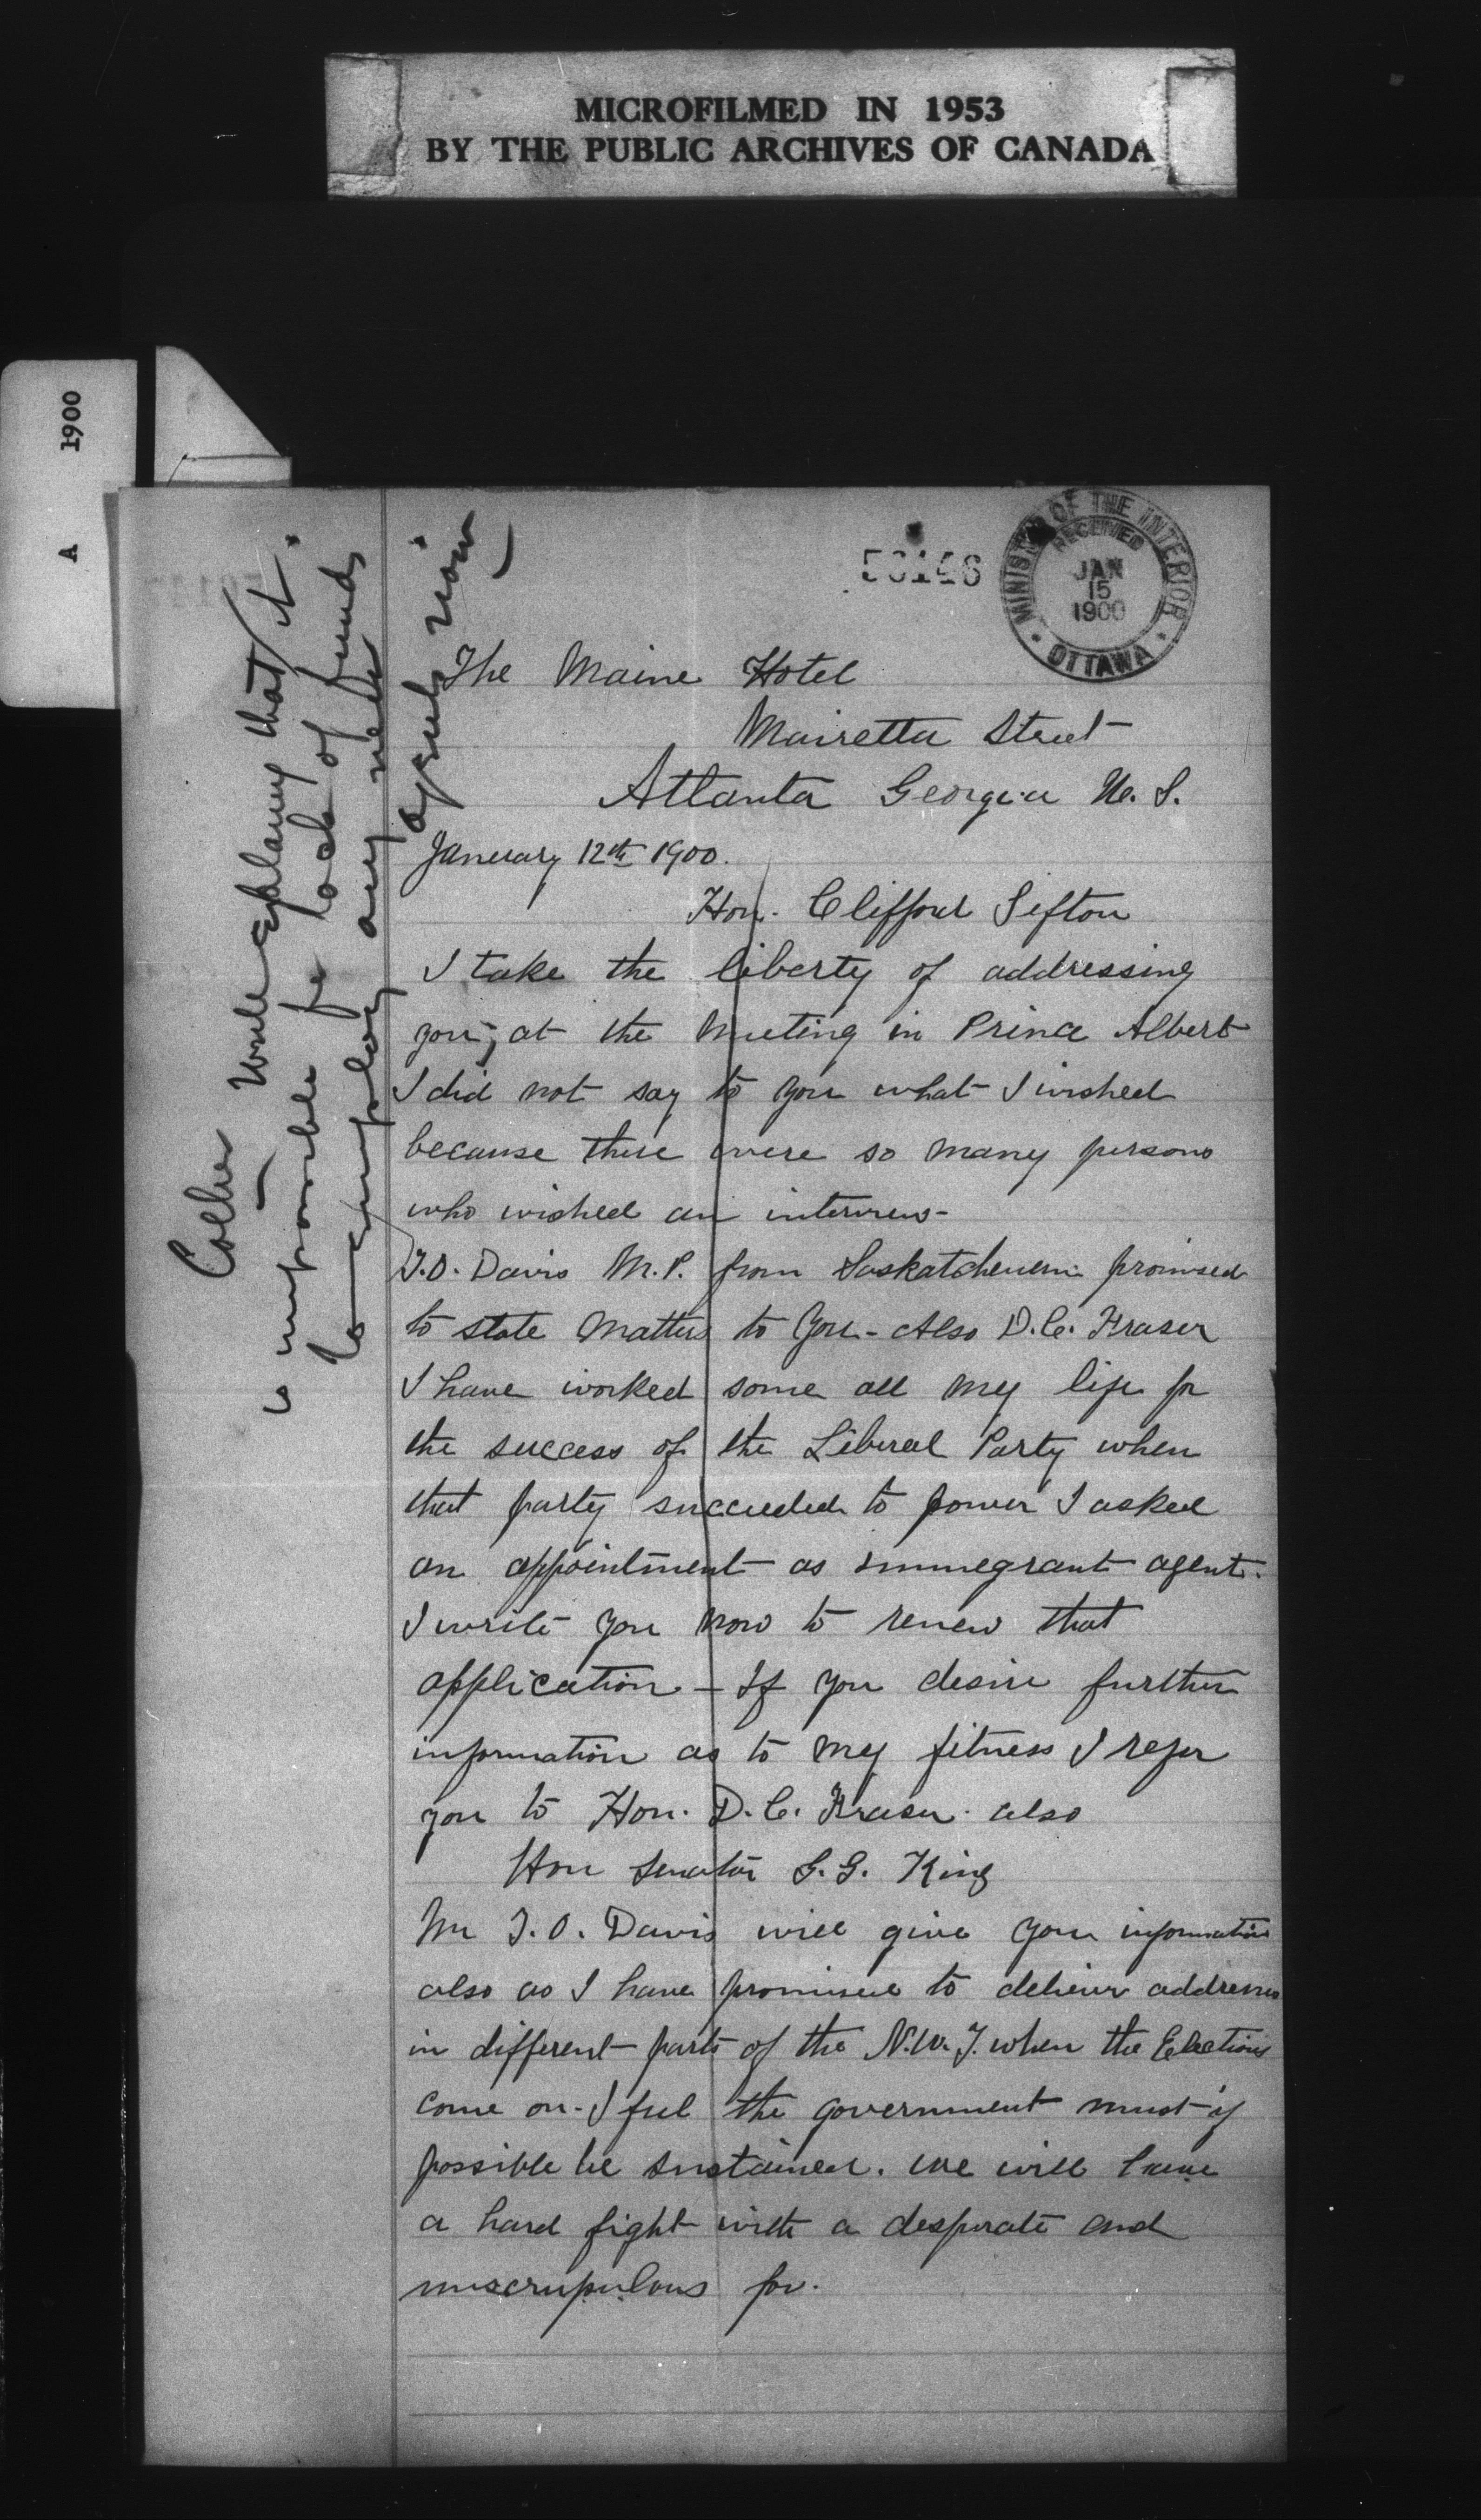 MICROFILMED IN 1953
BY THE PUBLIC ARCHIVES OF CANADA
1900
A
MINISTER OF THE INTERIOR
RECEIVED
JAN
15
1900
OTTAWA
Collier Write Explaining that it
is impossible for lack of funds
to employ any new
agents now
The Maine Hotel
Mairetta Street
Atlanta Georgia U. S.
January 12th 1900.
Hon. Clifford Sifton
I take the liberty of addressing
you, at the meeting in Prince Albert
I did not say to you what I wished
because there were so many persons
who wished an interview-
T.O. Davis M.P. from Saskatchewan promised
to state matters to you - Also D.C. Fraser
I have worked some all my life for
the success of the Liberal Party when
that party succeeded to power I asked
an appointment as immegrant agent.
I write you now to renew that
application - If you desire further
information as to my fitness I refer
you to Hon. D.C. Fraser also
Hon Senator G.G. King
Mr T.O. Davis will give you information
also as I have promised to deliver addresses
in different parts of the N.W.T. when the Elections
come on - I feel the government must if
possible be sustained. We will have
a hard fight with a desperate and
unscrupulous foe.